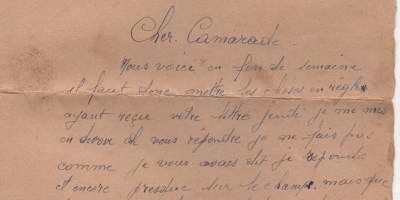 Cher. Camarade.
Nous voici en fin de semaine
il faut donc mettre les choses en règle
ayant reçu votre lettre jeudi je me mes
en devoir de vous répondre je ne fais pas
comme je vous avais dit je répondis
et encore presque sur le champs. mais que